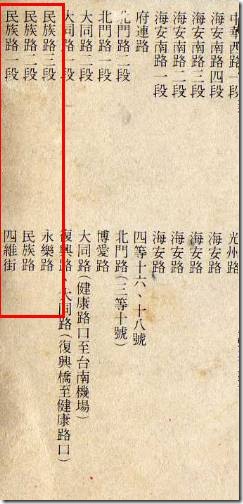 中華西路二段 光州路
海安南路四段 海安路
海安南路三段 海安路
海安南路二段 海安路
海安南路一段 海安路
府連路 四等十六、十八號
北門路二段 北門路(三等十號)
北門路一段 博愛路
大同路二段 大同路(健康路口至台南機場)
大同路一段 復興路、大同路(復興橋至健康路口)
民族路三段 永樂路
民族路二段 民族路
民族路一段 四維街